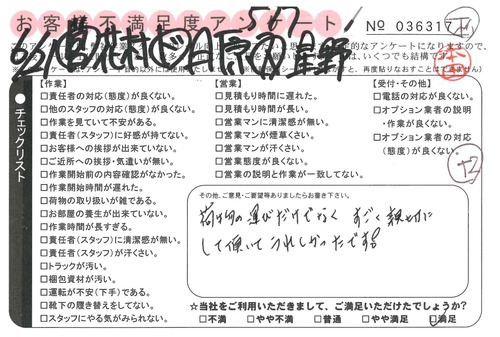 お客様不満足度アンケート
547
No 036317
【作業】
□責任者の対応(態度)が良くない。
□他のスタッフの対応(態度)が良くない。
□作業を見ていて不安がある。
□責任者(スタッフ)に好感が持てない。
□お客様への挨拶が出来ていない。
□ご近所への挨拶・気遣いが無い。
□作業開始前の内容確認がなかった。
□作業開始時間が遅れた。
□荷物の取り扱いが雑である。
□お部屋の養生が出来ていない。
□作業時間が長すぎる。
□責任者(スタッフ)に清潔感が無い。
□責任者(スタッフ)が汗臭い。
□トラックが汚い。
□梱包資材が汚い。
□運転が不安(下手)である。
□靴下の履き替えをしてない。
□スタッフにやる気がみられない。
チェックリスト
【営業】
□見積もり時間に遅れた。
□見積もり時間が長い。
□営業マンに清潔感が無い。
□営業マンが煙草くさい。
□営業マンが汗くさい。
□営業態度が良くない。
□営業の説明と作業が一致してない。
【受付・その他】
□電話の対応が良くない。
□オプション業者の説明
・作業が良くない。
□オプション業者の対応
(態度)が良くない。
その他、ご意見・ご要望等ありましたらお書き下さい。
荷物の運びだけでなく すごく親切に
して頂いて うれしかったです。
☆当社をご利用いただきまして、ご満足いただけたでしょうか?
□不満 □やや不満 □普通 □やや満足 □満足